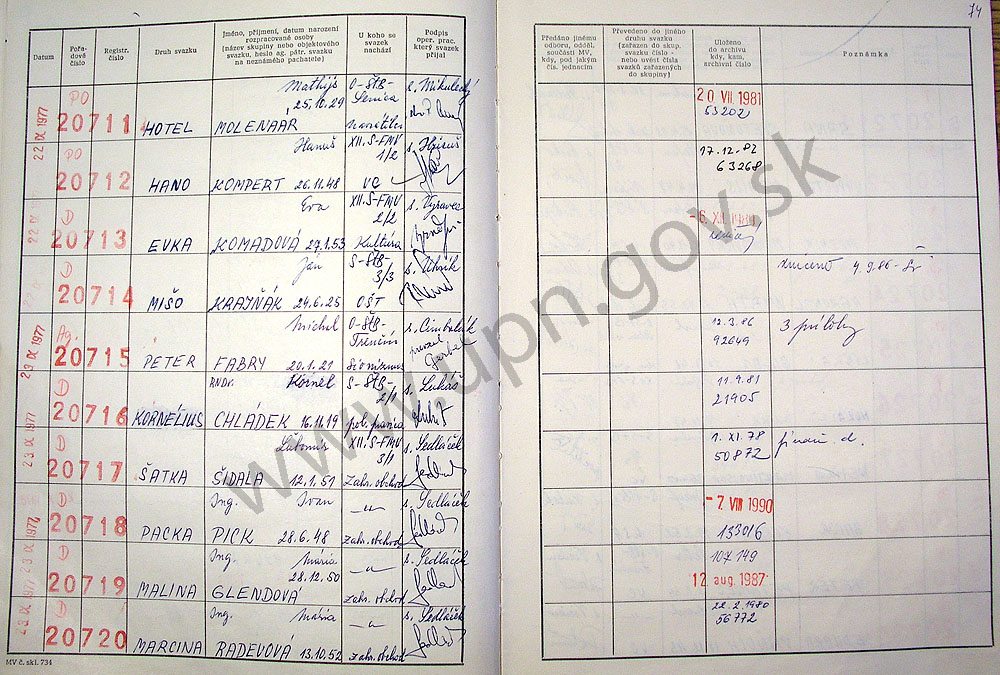 74
Datum
Pořadové číslo
Registr. číslo
Druh svazku
Jméno, příjmení, datum narození
rozpracované osoby
(název skupiny nebo objektového
svazku, heslo ag. pátr. svazku
na neznámého pachatele)
U koho se
svazek
nachází
Podpis
oper. prac.
který svazek
přijal
Předáno jinému
odboru, odděl.
součásti MV,
kdy, pod jakým
čís. jednacím
Převedeno do jiného
druhu svazku
(zařazen do skup.
svazku číslo -
nebo uvést čísla
svazků zařazených
do skupiny)
Uloženo
do archivu
kdy, kam,
archivní číslo
Poznámka
22 IX 1977 PO 20711 HOTEL Mathijs MOLENAAR 25.10.29 O-ŠTB- Senica s. Mikulecký
20 VII. 1981
53202
PO 20712 HANO Hanuš KOMPERT 26.11.48 XII.S-FMV 1/2 VC
17.12.82
63268
22 IX D 20713 EVKA Eva KOMADOVÁ 27.1.53 XII.S-FMV 2/2 Kultúra s. Vyravec
-6. XII.
D 20714 MIŠO Ján KRAJŇÁK 24.6.25 S-ŠTB- 3/3 OŠT s. Uhrík
zničené 4.9.86
23 IX 1977 Ag. 20715 PETER Michal FABRY 20.1.21 O-ŠTB- Trenčín Sionizmus s. Cimbalák
12.3.86
92649
3 prílohy
D 20716 KORNÉLIUS RNDr. Kornel CHLÁDEK 16.11.19 S-ŠTB- 2/1 s. Lukáš
11.9.81
21905
23 IX 1977 D 20717 ŠATKA Ľubomír ŠIDALA 12.1.51 XII.S-FMV 3/1 zahr. obchod s. Sedláček
1. XI. 78
50872
D 20718 PACKA Ing. Ivan PICK 28.6.48 -"- zahr. obchod s. Sedláček
-7. VIII 1990
133016
23 IX 1977 D 20719 MALINA Ing. Mária GLENDOVÁ 28.12.50 -"- zahr. obchod s. Sedláček
107149
12 aug. 1987
23 IX 1977 D 20720 MARCINA Ing. Mária RADEVOVÁ 13.10.52 -a- zahr. obchod s. Sedláček
22.2.1980
56772
MV č. skl. 734
www.upn.gov.sk